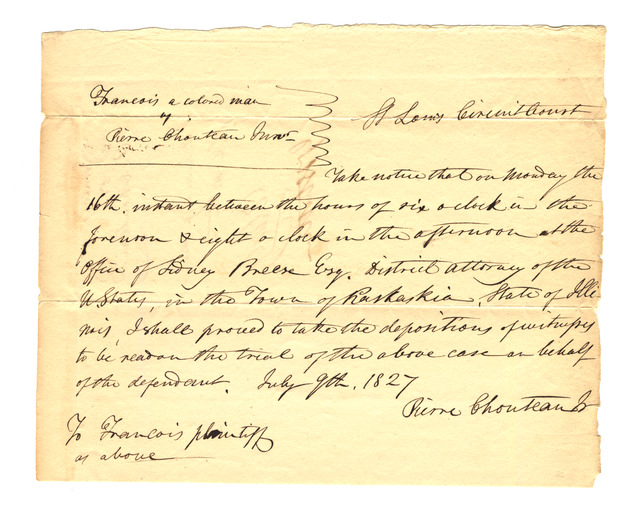 Francois a colored man
vs
Pierre Chouteau Junr
St Louis Circuit Court
Take notice that on Monday the
16th. instant between the hours of six o clock in the
forenoon & eight o clock in the afternoon at the
Office of Sidney Breese Esq. District attorney of the
U States, in the Town of Kaskaskia, State of Illi
nois, I shall proceed to take the depositions of witnesses
to be read on the trial of the above case on behalf
of the defendant. July 9th. 1827
Pierre Chouteau Jr
To Francois plaintiff
as above